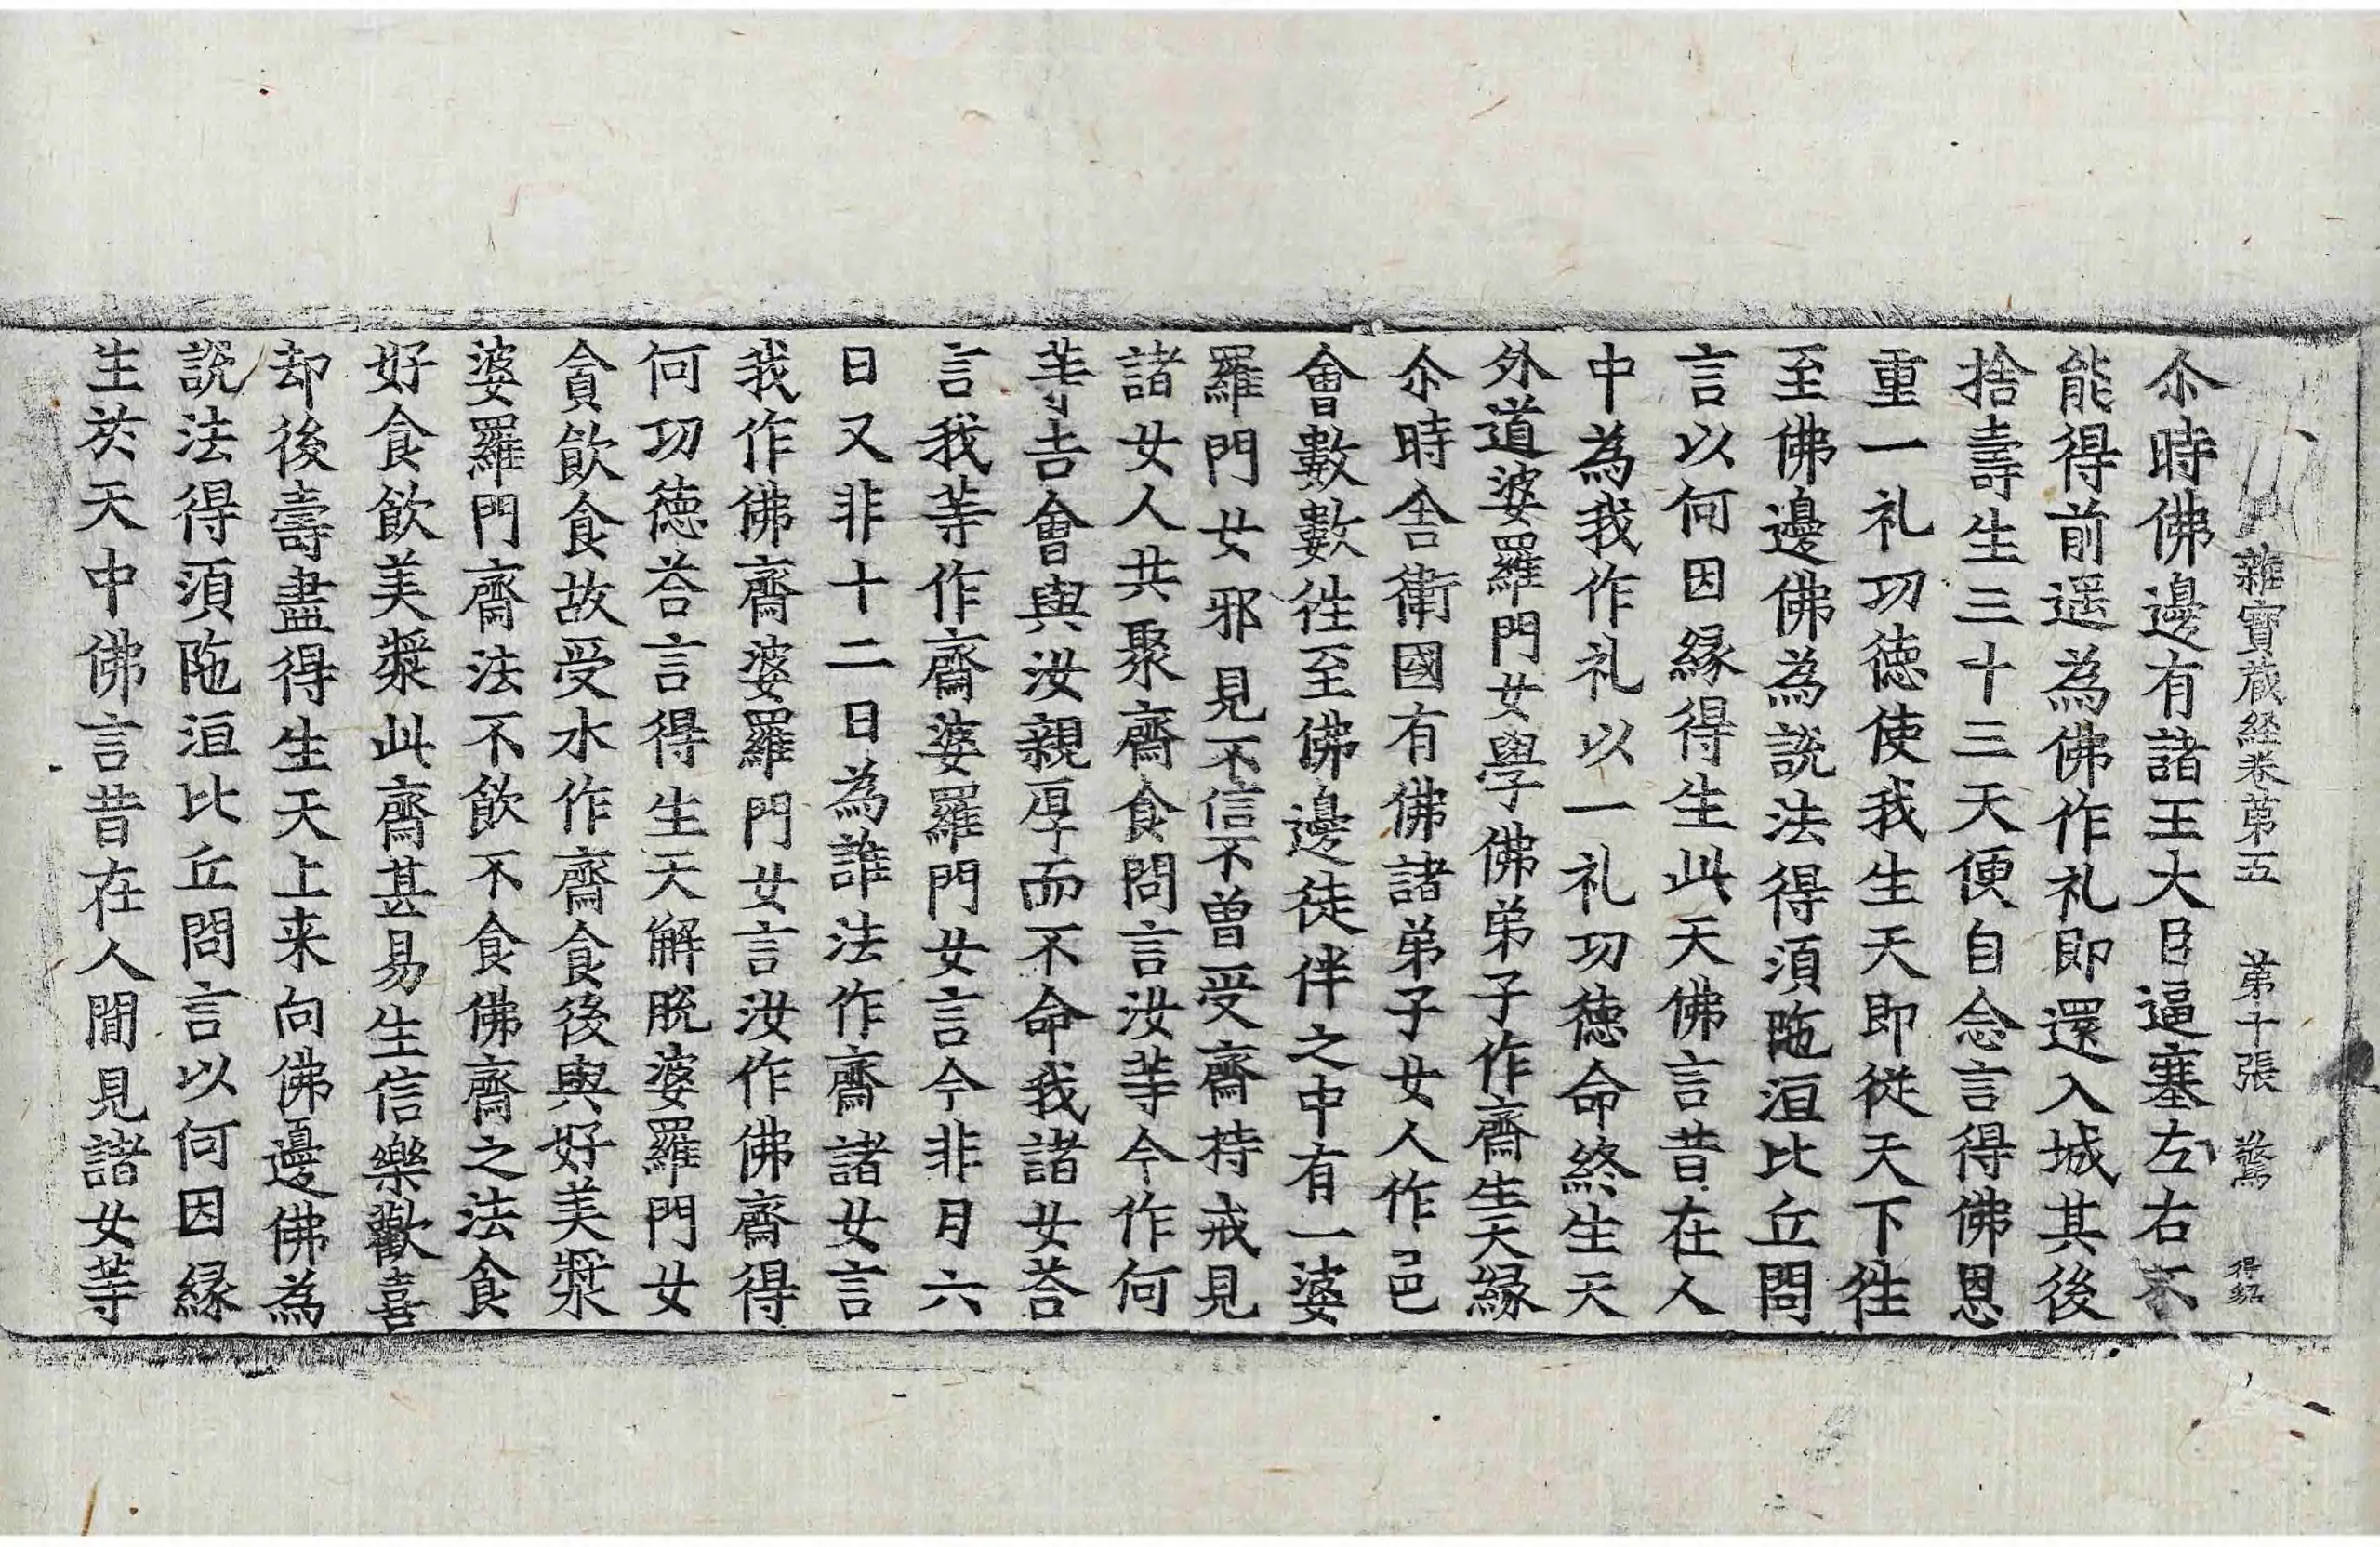 雜寶蔵経卷苐五　苐十張　驚　得紹
尒時佛邊有諸王大臣逼塞左右不
能得前遥為佛作礼即還入城其後
捨壽生三十三天便自念言得佛恩
重一礼功徳使我生天即從天下往
至佛邊佛為說法得湏陁洹比丘問
言以何因縁得生此天佛言昔在人
中為我作礼以一礼功徳命終生天
外道婆羅門女學佛弟子作齋生天縁
尒時舎衛國有佛諸弟子女人作邑
會數數往至佛邊徒伴之中有一婆
羅門女邪見不信不曽受齋持戒見
諸女人共聚齋食問言汝等今作何
等吉會與汝親厚而不命我諸女荅
言我等作齋婆羅門女言今非月六
日又非十二日為誰法作齋諸女言
我作佛齋婆羅門女言汝作佛齋得
何功徳荅言得生天解脫婆羅門女
貪飲食故受水作齋食後與好美漿
婆羅門齋法不飲不食佛齋之法食
好食飲美漿此齋甚易生信樂歡喜
却後壽盡得生天上来向佛邊佛為
說法得湏陁洹比丘問言以何因縁
生於天中佛言昔在人間見諸女等